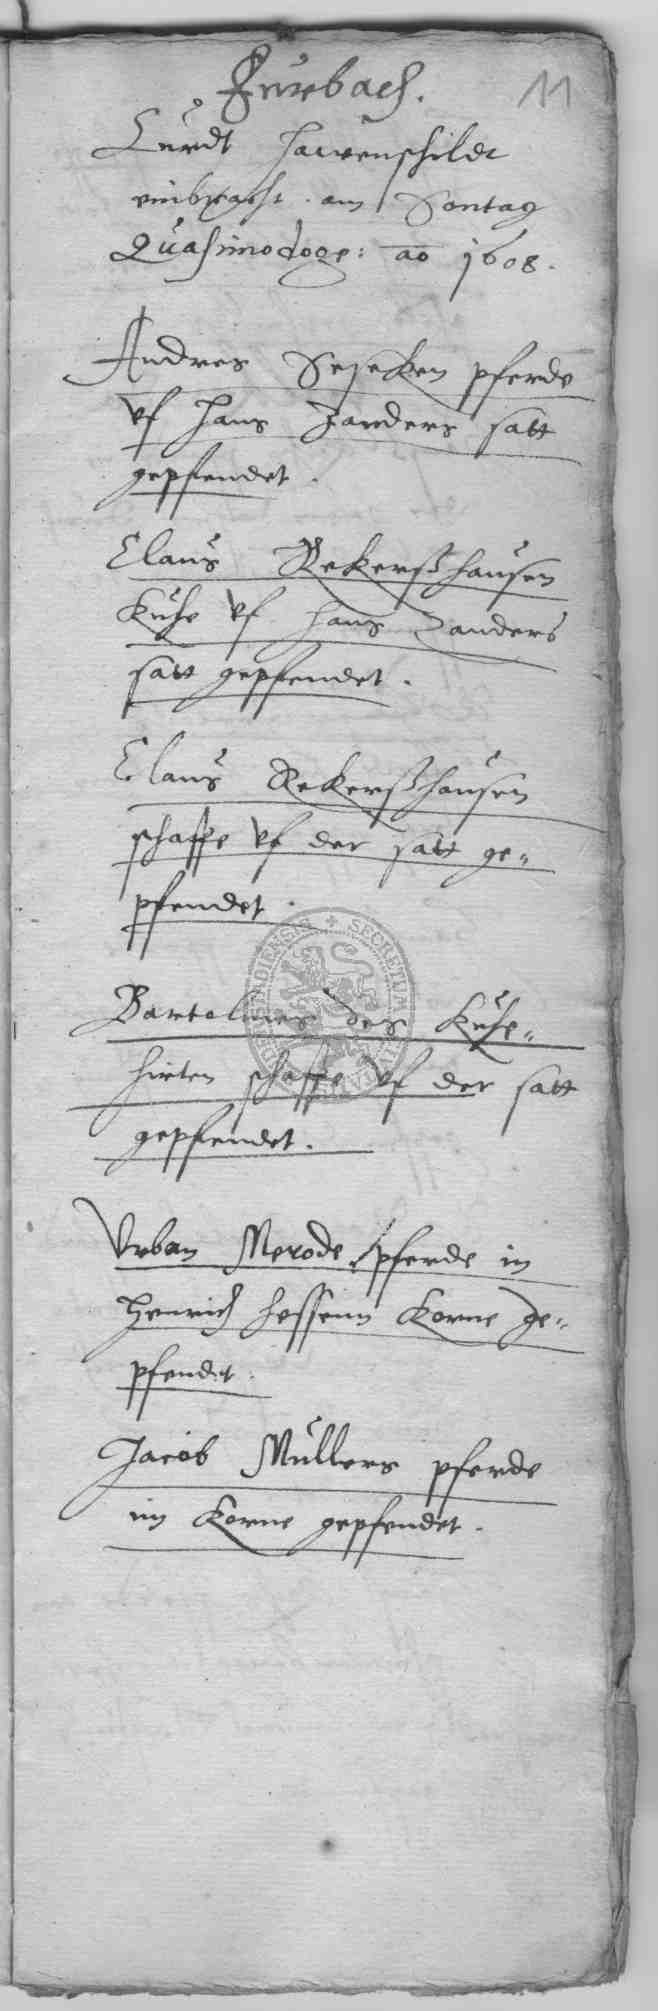 Furbach.
11
Curdt Hauvenschildt
einbracht am Sontag
Quasimodoge: ao 1608.
Andres Seseken pferde
vf Hans Zanders satt
gepfendet.
Claus Rekerßhausen
Kuhe vf Hans Zanders
satt gepfendet.
Claus Rekerßhausen
schaffe vf der satt ge-
pfendet.
Bartolmes des Kuhe-
hirten schaffe vf der satt
gepfendet.
SECRETUM
Vrban Merode pferde in
Henrich Hessenn Korne ge-
pfendet.
Jacob Müllers pferde
im Korne gepfendet.